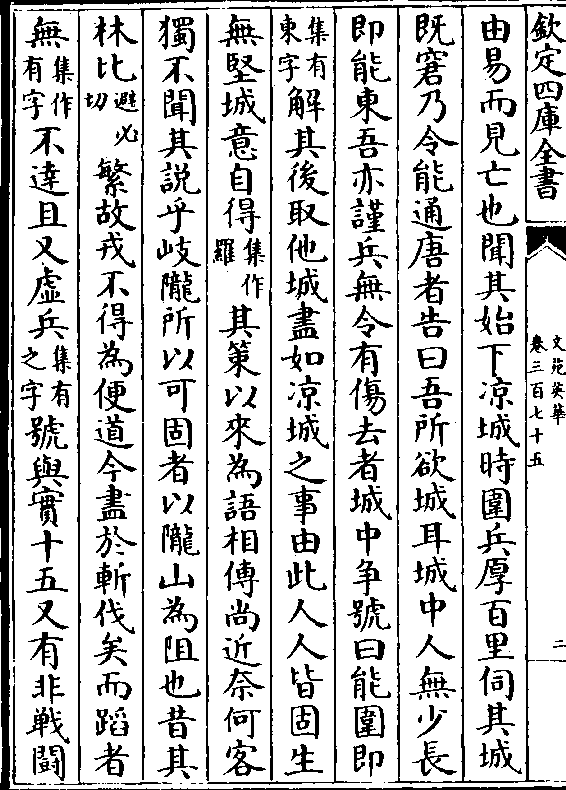 欽定四庫全書
文苑英華
卷三百七十五
二
由易而見亡也聞其始下凉城時圍兵厚百里伺其城
既窘乃令能通唐者告曰吾所欲城耳城中人無少長
即能東吾亦謹兵無令有傷去者城中争號曰能圍即
東集有字解其後取他城盡如凉城之事由此人人皆固生
無堅城意自得集作羅其策以來為語相傳尚近奈何客
獨不聞其説乎岐隴所以可固者以隴山為阻也昔其
林比避必切繁故戎不得為便道今盡於斬伐矣而蹈者
無集作有字不達且又虛兵集有之字號與實十五又有非戰鬭